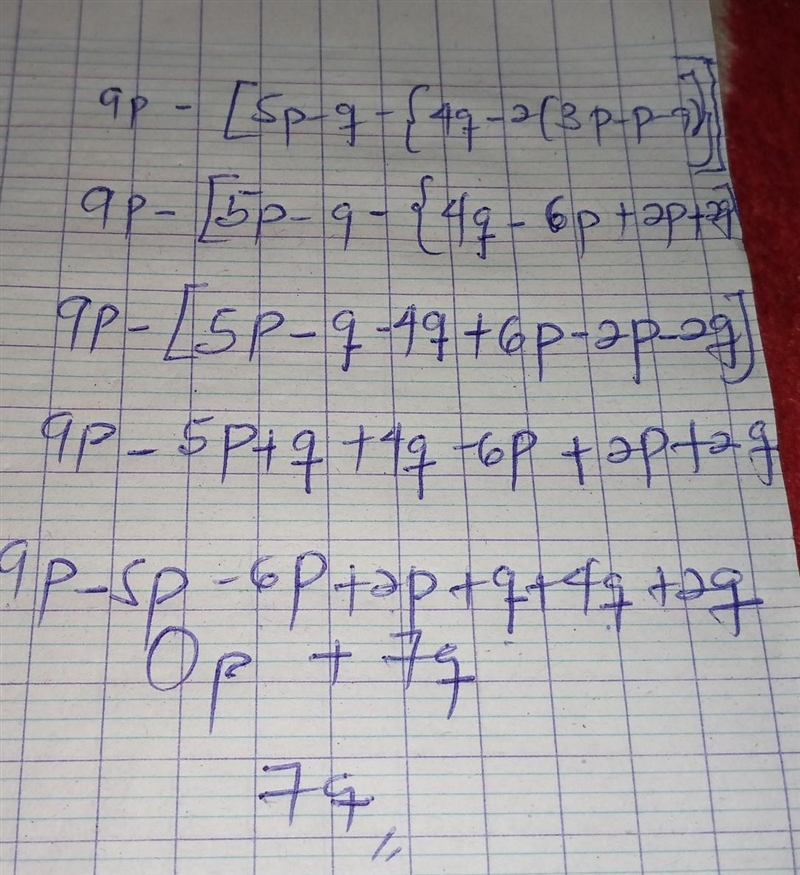 9p - [5p-q-{4q-2(3p-p-q)}]
9p-[5p-q-{4q-6p+2p+2q}
9p-[5p-q-4q+6p-2p-2q]
9p-5p+q+4q-6p+2p+2q
9p-5p-6p+2p+q+4q+2q
0p + 7q
7q